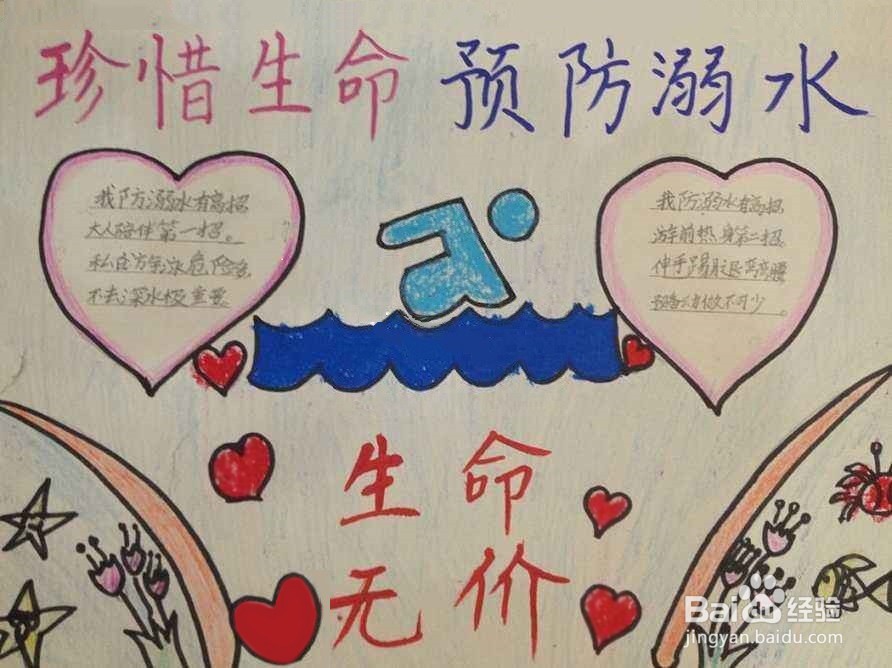 珍惜生命 预防溺水
我防溺水有高招
大人陪伴第一招。
危险多
不去深水极重要
我防溺水有高招
游前热身第二招
伸手踢腿弯弯腰
不可少。
生命
无价
Baidu经验
jingyan.baidu.com